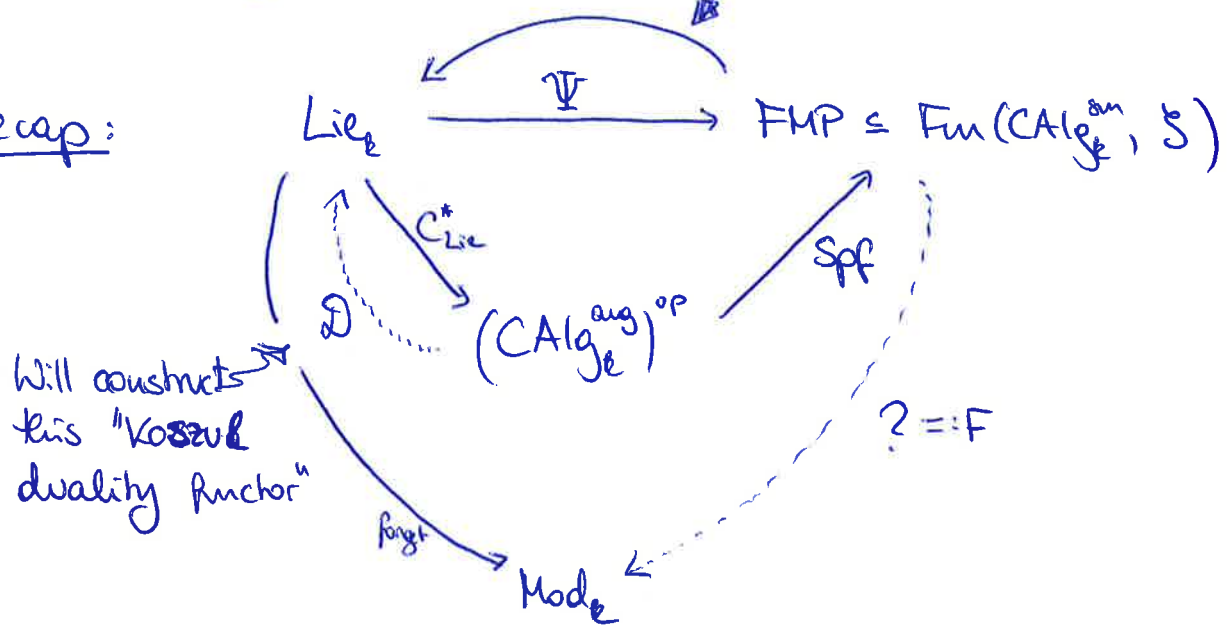 ecap:
Lie_k
Ψ
FMP ⊆ Fun(CAlg_k^{sm}, S)
C^*_{Lie}
Spf
D
(CAlg_k^{aug})^{op}
Will constructs
this "Koszul
duality functor"
? =: F
forget
Mod_k